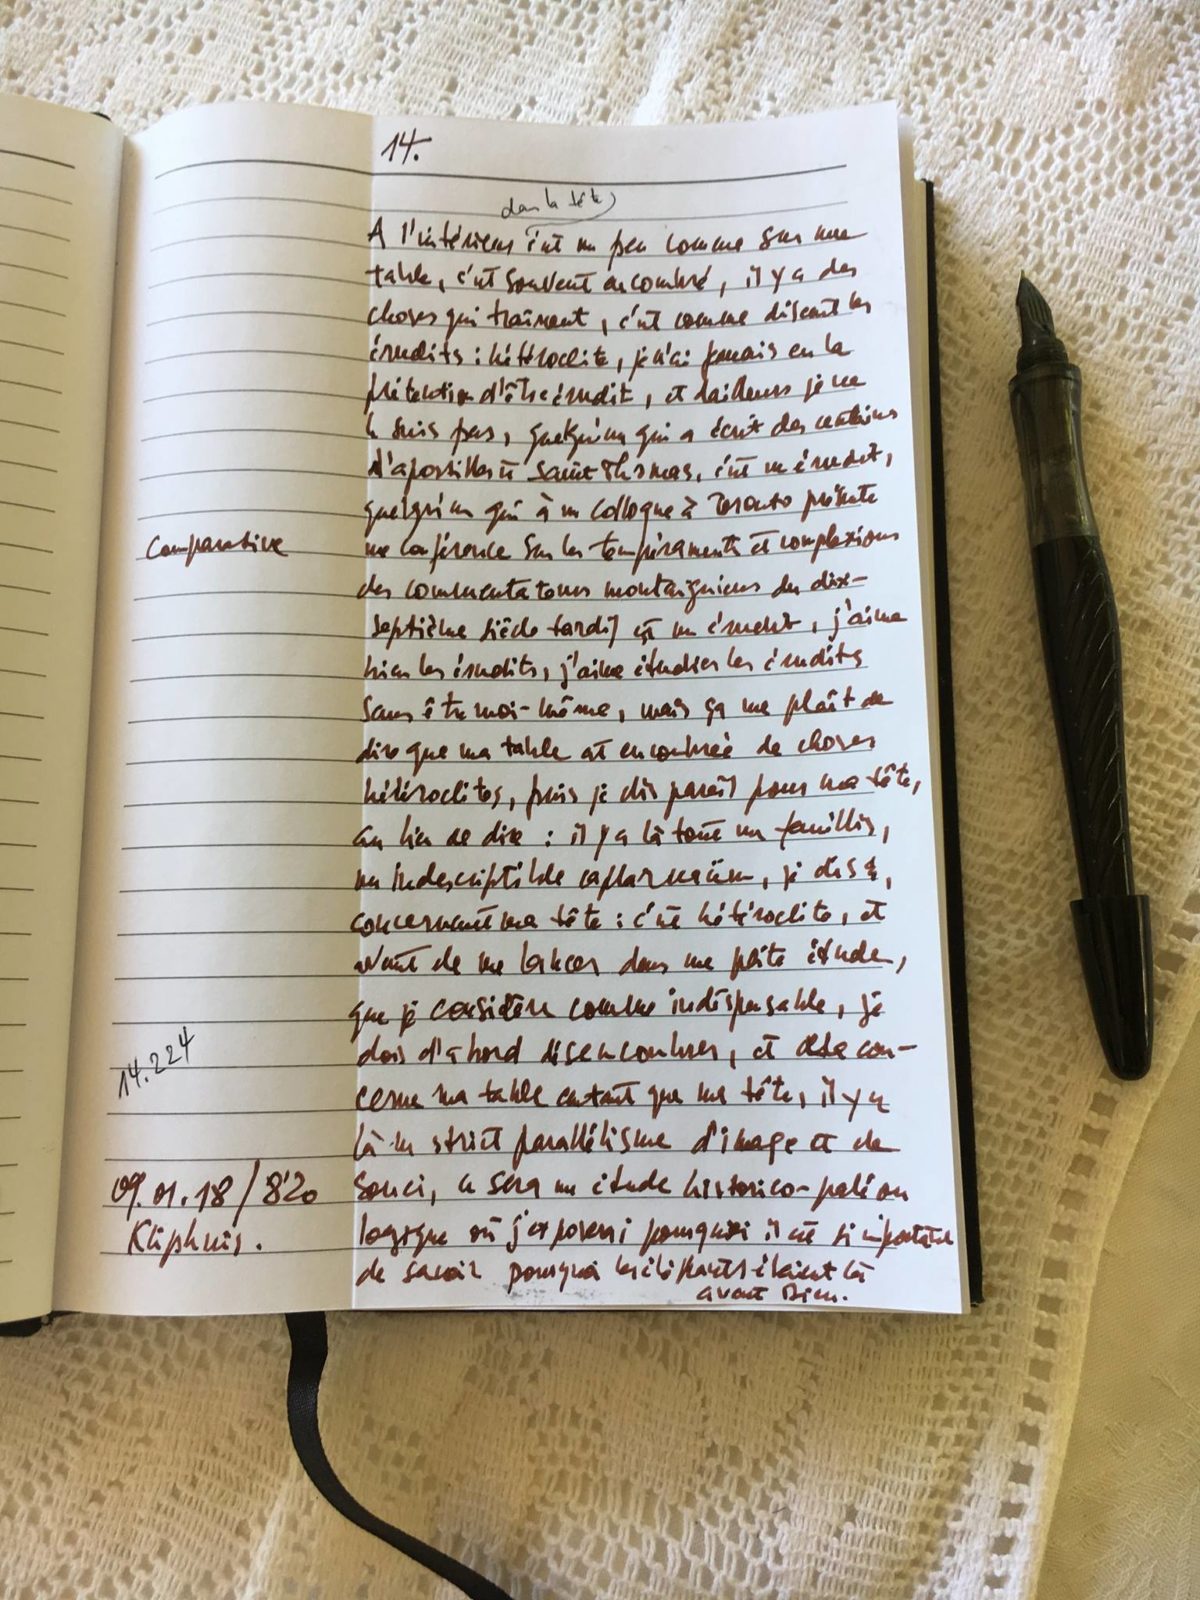 14.
dans la tête
A l'intérieur c'est un peu comme sur une
table, c'est souvent encombré, il y a des
choses qui traînent, c'est comme disent les
érudits : hétéroclite, je n'ai jamais eu la
prétention d'être érudit, et d'ailleurs je ne
le suis pas, quelqu'un qui a écrit des centaines
d'apostilles à Saint Thomas, c'est un érudit,
quelqu'un qui à un colloque à Toronto présente
Comparative
une conférence sur les tempéraments et complexions
des commentateurs montaigniens du dix-
septième siècle tardif est un érudit, j'aime
bien les érudits, j'aime étudier les érudits
sans être moi-même, mais ça me plaît de
dire que ma table est encombrée de choses
hétéroclites, puis je dis pareil pour ma tête,
au lieu de dire : il y a là tout un fouillis,
un indescriptible capharnaüm, je dis
concernant ma tête : c'est hétéroclite, et
avant de me lancer dans une petite étude,
que je considère comme indispensable, je
dois d'abord désencombrer, et cela con-
14.224
cerne ma table autant que ma tête, il y a
là un strict parallélisme d'image et de
09.01.18/8'20
souci, ce sera une étude historico-paléon
Kliphuis.
logique où j'exposerai pourquoi il est si important
de savoir pourquoi les éléphants étaient là
avant Dieu.